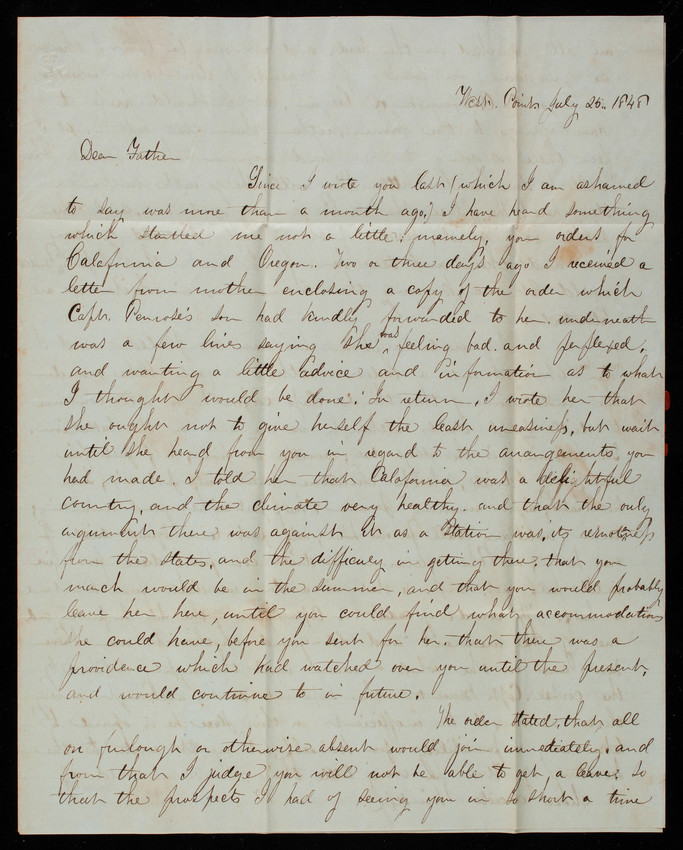 West. Point July 25.. 1848
Dear Father
Since I wrote you last (which I am ashamed
to say was more than a month ago,) I have heard something
which startled me not a little: namely, your orders for
Calafornia and Oregon. Two or three days ago I received a
letter from mother enclosing a copy of the order which
Capt. Penrose's son had kindly forwarded to her. underneath
was a few lines saying she was feeling bad. and perplexed.
and wanting a little advice and information as to what
I thought would be done. In return, I wrote her that
she ought not to give herself the least uneasiness, but wait
until she heard from you in regard to the arrangements you
had made. I told her that Calafornia was a delightful
country, and the climate very healthy. and that the only
argument there was against it as a station was, its remoteness
from the states, and the difficulty in getting there. that your
march would be in the summer, and that you would probably
leave her here, until you could find what accommodations
she could have, before you sent for her. that there was a
providence which had watched over you until the present,
and would continue to in future.
The order stated, that all
on furlough or otherwise absent would join immediately. and
from that I judge you will not be able to get a leave: so
that the prospects I had of seeing you in so short a time